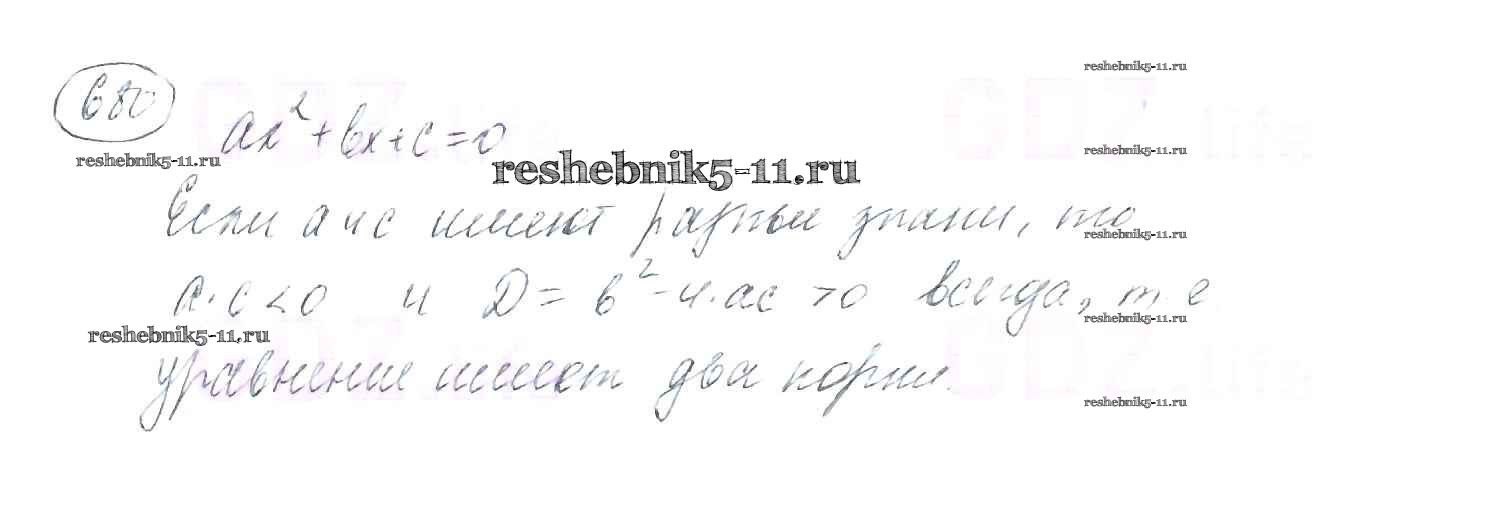 680
ax² + bx + c = 0
Если а и с имеют разные знаки, то
a · c < 0 и D = b² - 4 · ac > 0 всегда, т. е
уравнение имеет два корня.
reshebnik5-11.ru
reshebnik5-11.ru
reshebnik5-11.ru
reshebnik5-11.ru
reshebnik5-11.ru
reshebnik5-11.ru
reshebnik5-11.ru
reshebnik5-11.ru
GDZ.life
GDZ.life
GDZ.life
GDZ.life